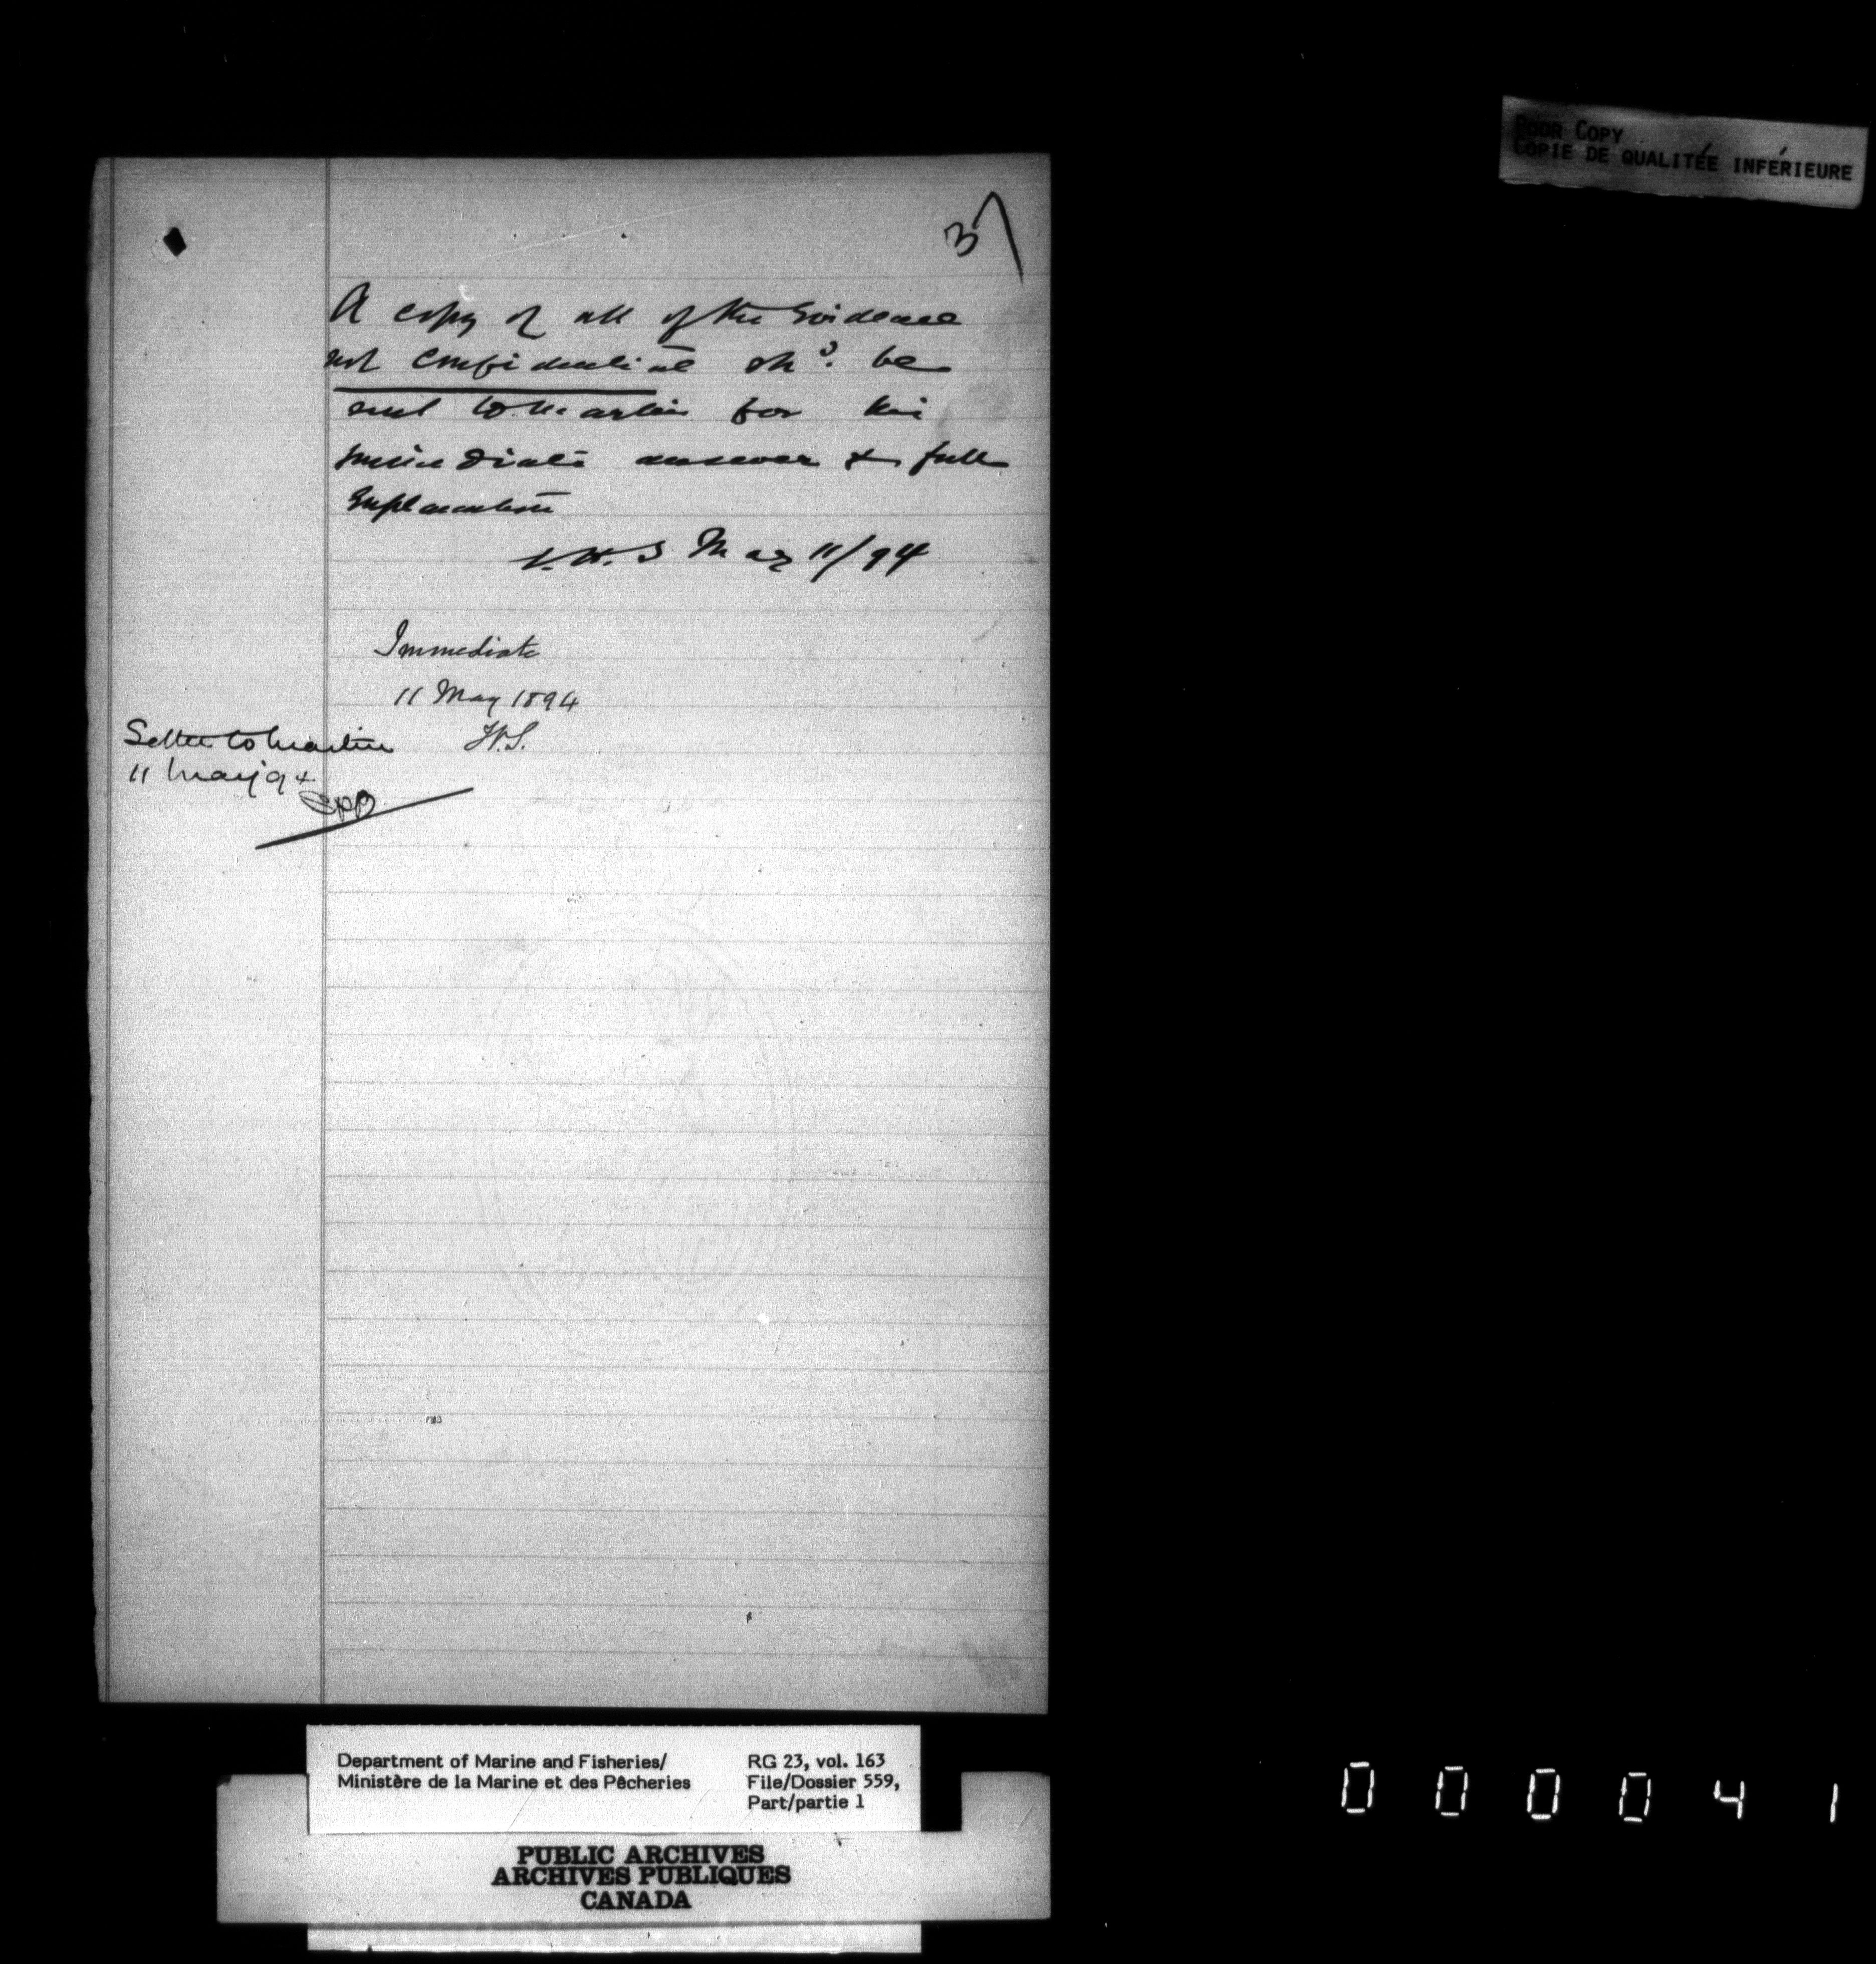 POOR COPY
COPIE DE QUALITÉE INFÉRIEURE
3
A copy of all of the Evidence
not confidential shd. be
sent to Martin for his
immediate answer & full
Explanation
C.H.T May 11/94
Immediate
11 May 1894
Letter to Martin
11 May 94
Department of Marine and Fisheries/
Ministère de la Marine et des Pêcheries
RG 23, vol. 163
File/Dossier 559,
Part/partie 1
PUBLIC ARCHIVES
ARCHIVES PUBLIQUES
CANADA
000041